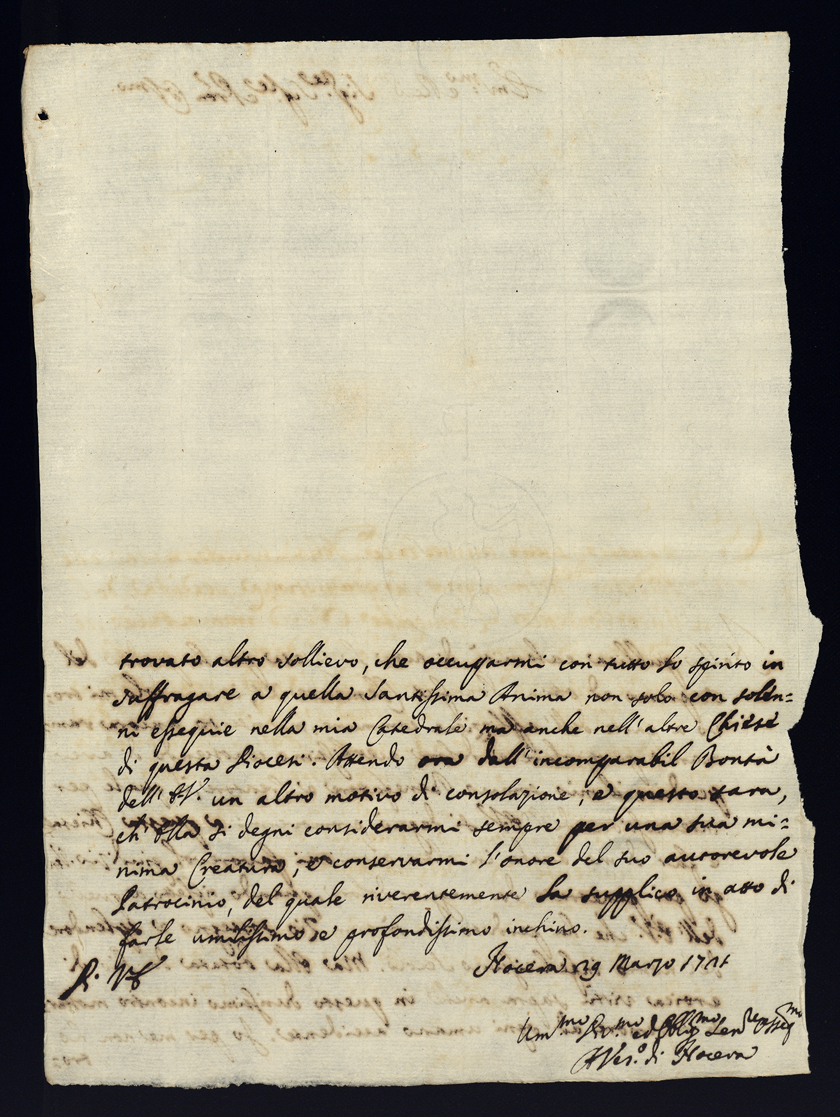 trovato altro sollievo, che occuparmi con tutto lo spirito in
suffragare a quella Santissima Anima non solo con solen=
ni esequie nella mia Catedrale ma anche nell'altre Chiese
di questa Diocesi. Attendo ora dall'incomparabil Bontà
dell' un altro motivo di consolazione, e questo sara,
ch'Ella si degni considerarmi sempre per una sua mi=
nima Creatura, e conservarmi l'onore del suo autorevole
Patrocinio, del quale riverentemente la supplico in atto di
farle umilissimo e profondissimo inchino.
Nocera 29 Marzo 1721
Um.mo ed Obbl.mo
Ves.o di Nocera